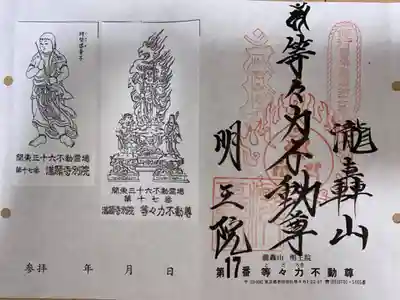 等々力不動尊
瀧轟山
明王院
関東三十六不動霊場
第十七番 満願寺別院
関東三十六不動霊場
第十七番
満願寺別院 等々力不動尊
参拝 年 月 日
瀧轟山 明王院
第17番 等々力不動尊